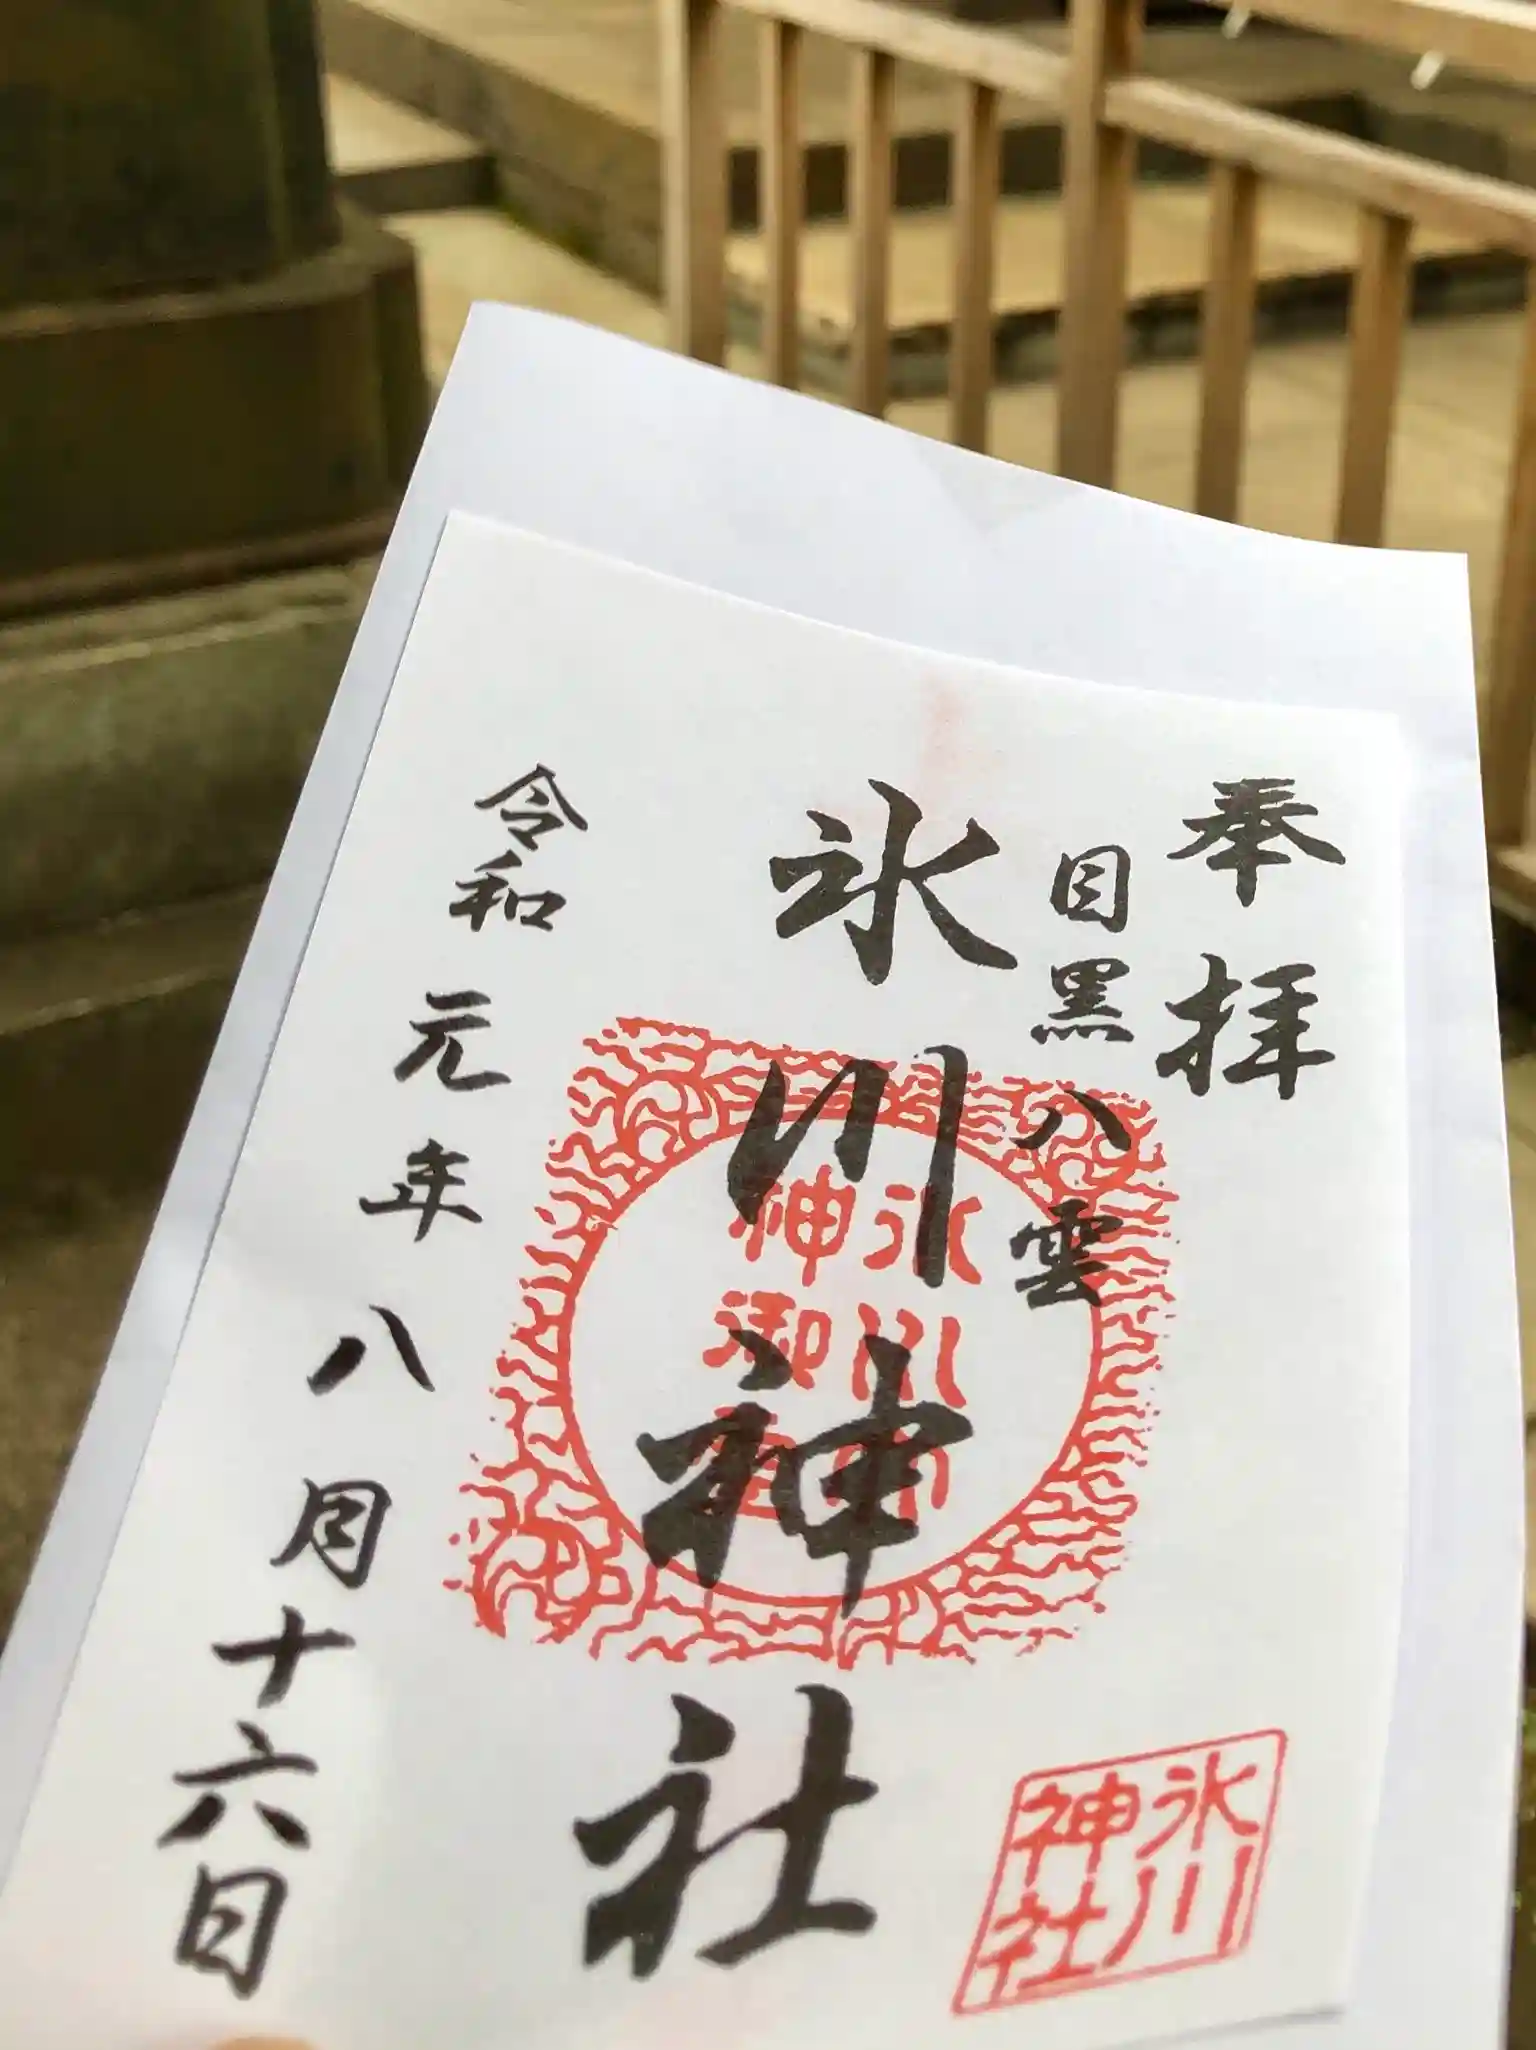 奉拝
目黒八雲
氷川神社
令和元年八月十六日
氷川
神御
氷川
神社